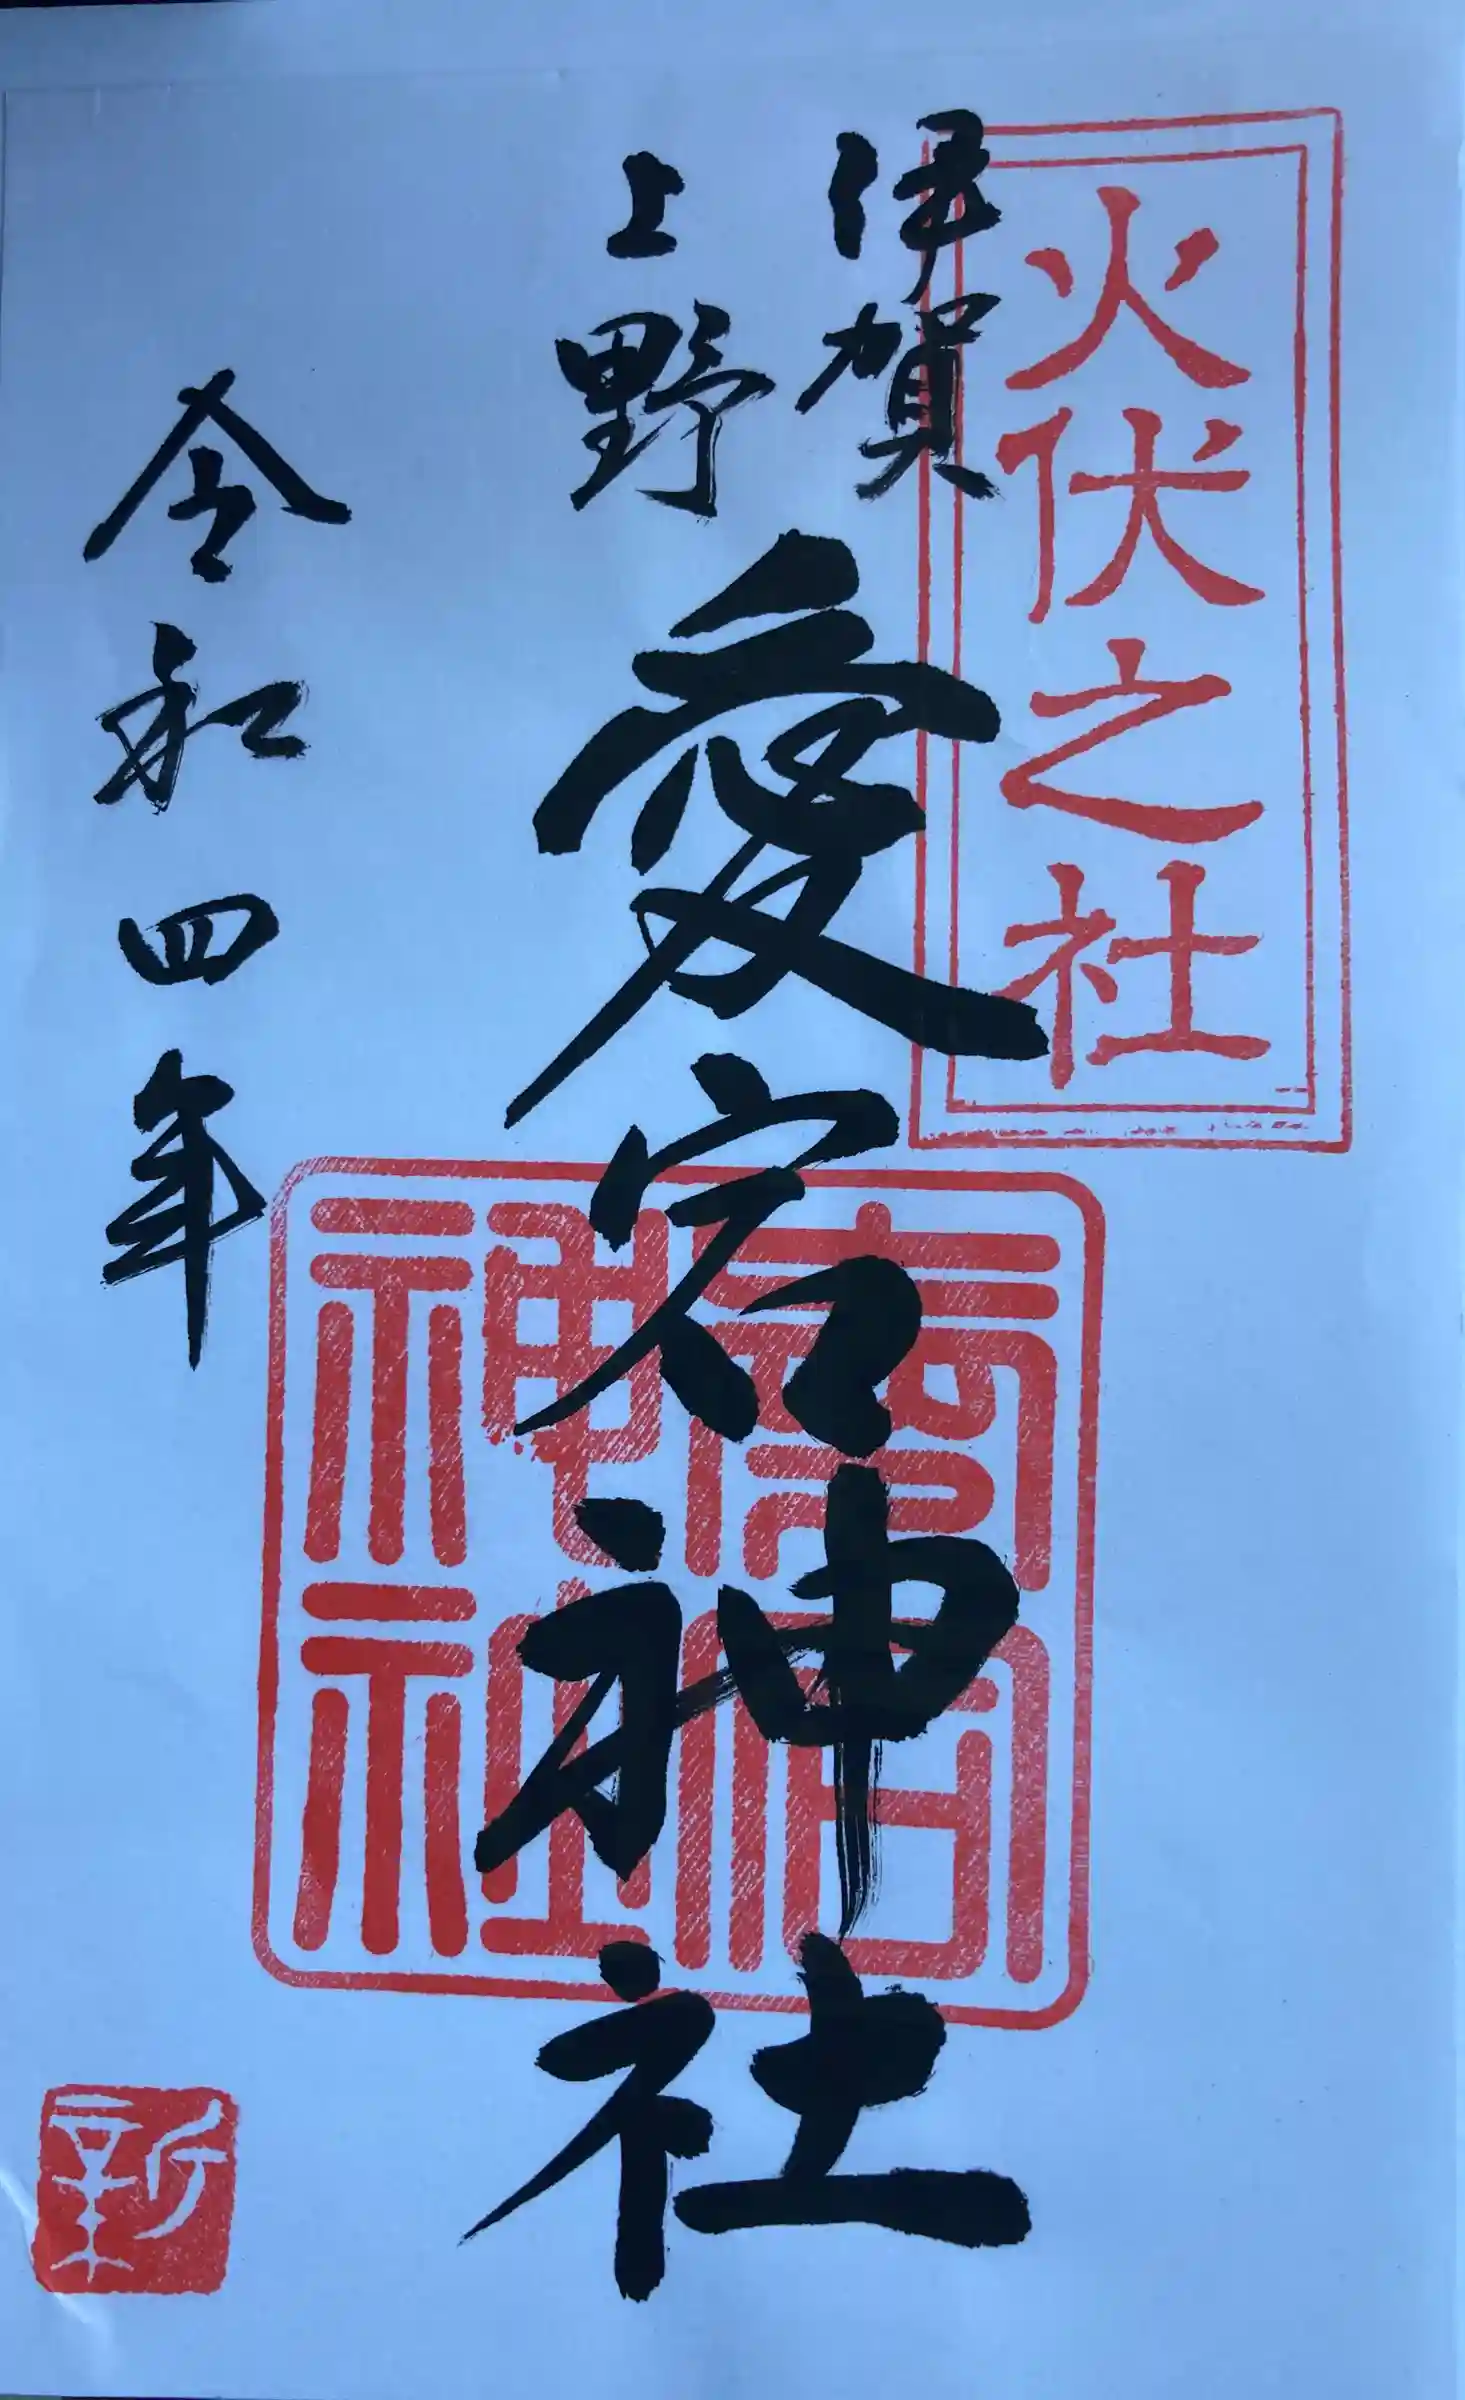 火伏之社
伊賀
上野
愛宕神社
神社
令和四年
新